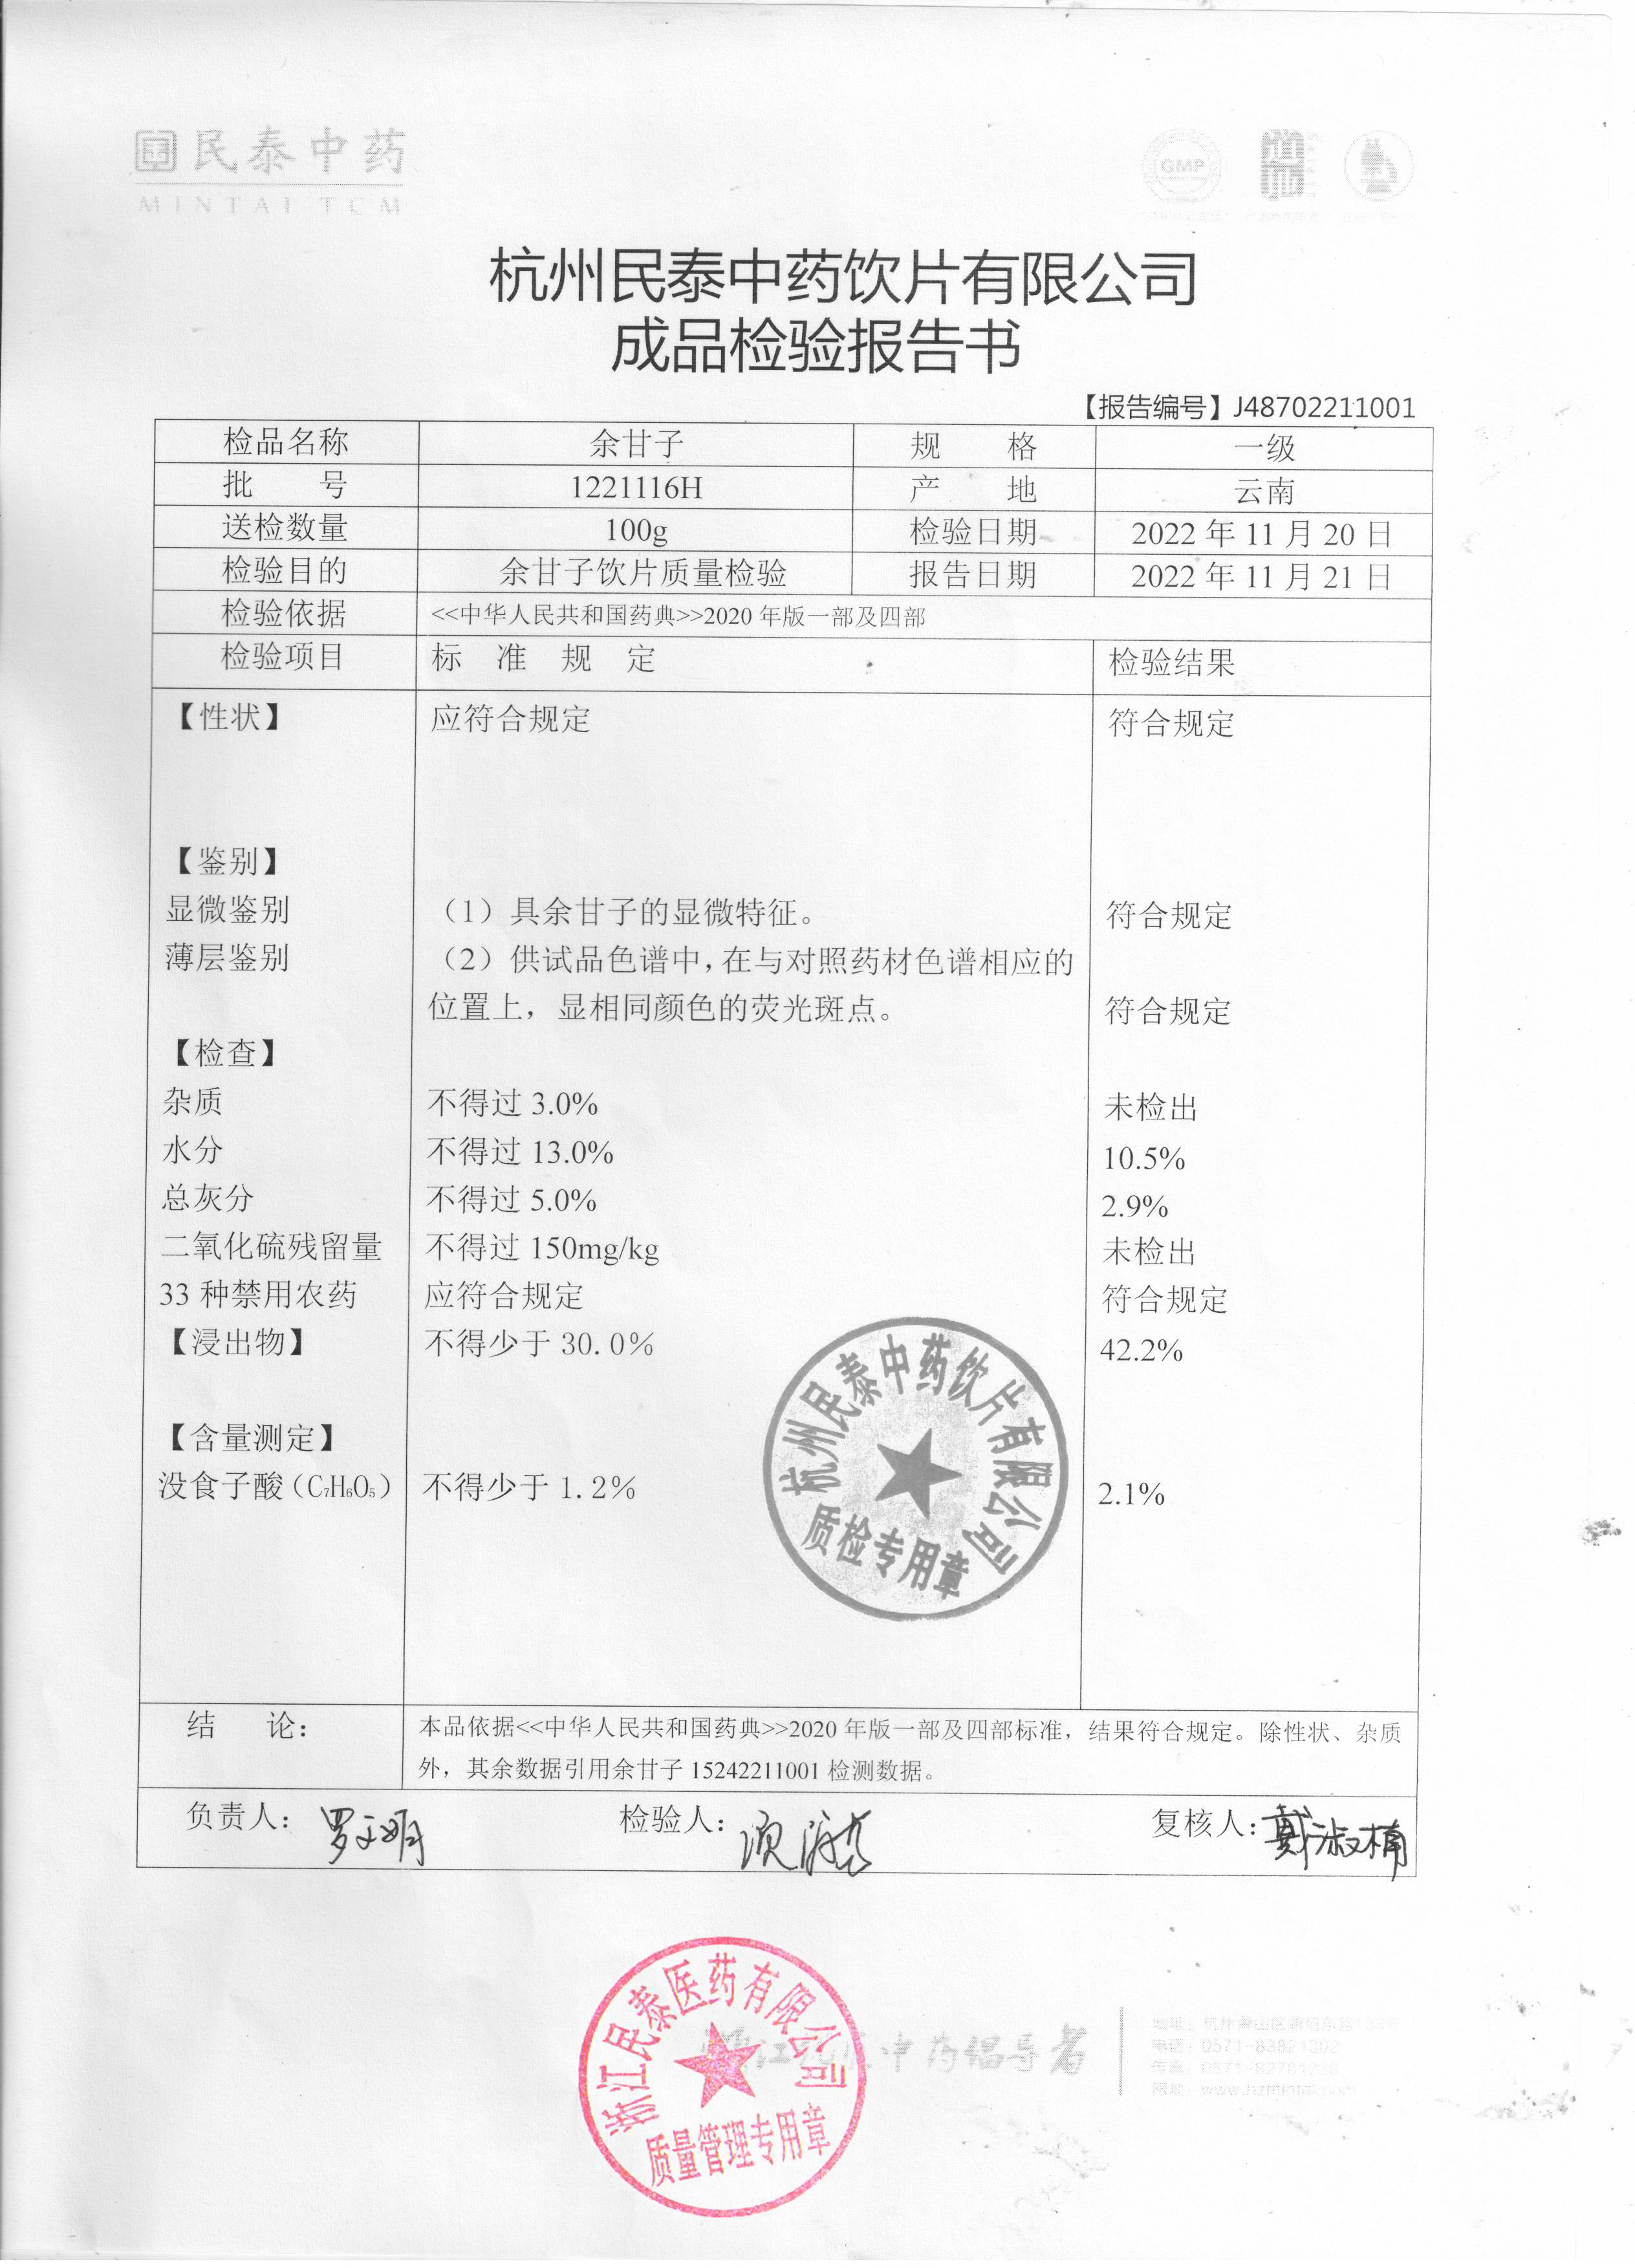 民泰中药
MINTAI TCM
GMP
杭州民泰中药饮片有限公司
成品检验报告书
【报告编号】J48702211001
检品名称 余甘子 规 格 一级
批 号 1221116H 产 地 云南
送检数量 100g 检验日期 2022 年 11 月 20 日
检验目的 余甘子饮片质量检验 报告日期 2022 年 11 月 21 日
检验依据 <<中华人民共和国药典>>2020 年版一部及四部
检验项目 标 准 规 定 检验结果
【性状】 应符合规定 符合规定
【鉴别】
显微鉴别 （1）具余甘子的显微特征。 符合规定
薄层鉴别 （2）供试品色谱中，在与对照药材色谱相应的
位置上，显相同颜色的荧光斑点。 符合规定
【检查】
杂质 不得过 3.0% 未检出
水分 不得过 13.0% 10.5%
总灰分 不得过 5.0% 2.9%
二氧化硫残留量 不得过 150mg/kg 未检出
33 种禁用农药 应符合规定 符合规定
【浸出物】 不得少于 30.0% 42.2%
【含量测定】
没食子酸（C₇H₆O₅） 不得少于 1.2% 2.1%
杭州民泰中药饮片有限公司
质检专用章
结 论： 本品依据<<中华人民共和国药典>>2020 年版一部及四部标准，结果符合规定。除性状、杂质
外，其余数据引用余甘子 15242211001 检测数据。
负责人： 检验人： 复核人：戴淑楠
浙江民泰医药有限公司
质量管理专用章
中药倡导者
电话：0571-83821302